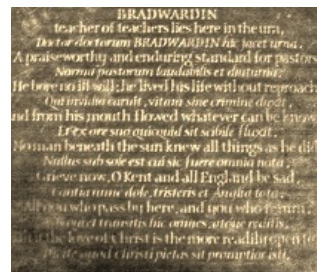 BRADWARDIN
teacher of teachers lies here in the urn,
Doctor doctorum BRADWARDIN hic jacet urna,
A praiseworthy and enduring standard for pastors
Norma pastorum laudabilis et diuturna:
He bore no ill will; he lived his life without reproach
Qui invidia caruit, vitam sine crimine duxit,
and from his mouth flowed whatever can be known
Et ex ore suo quicquid sit scibile fluxit.
No man beneath the sun knew all things as he did
Nullus sub sole est cui sic fuere omnia nota;
Grieve now, O Kent and all England be sad,
Cantia nunc dole, tristeris et Anglia tota;
All you who pass by here, and you who return,
Vos qui transitis hic omnes, atque reditis,
that the love of Christ is the more readily open to
Dicite quod Christi pietas sit promptior isti.